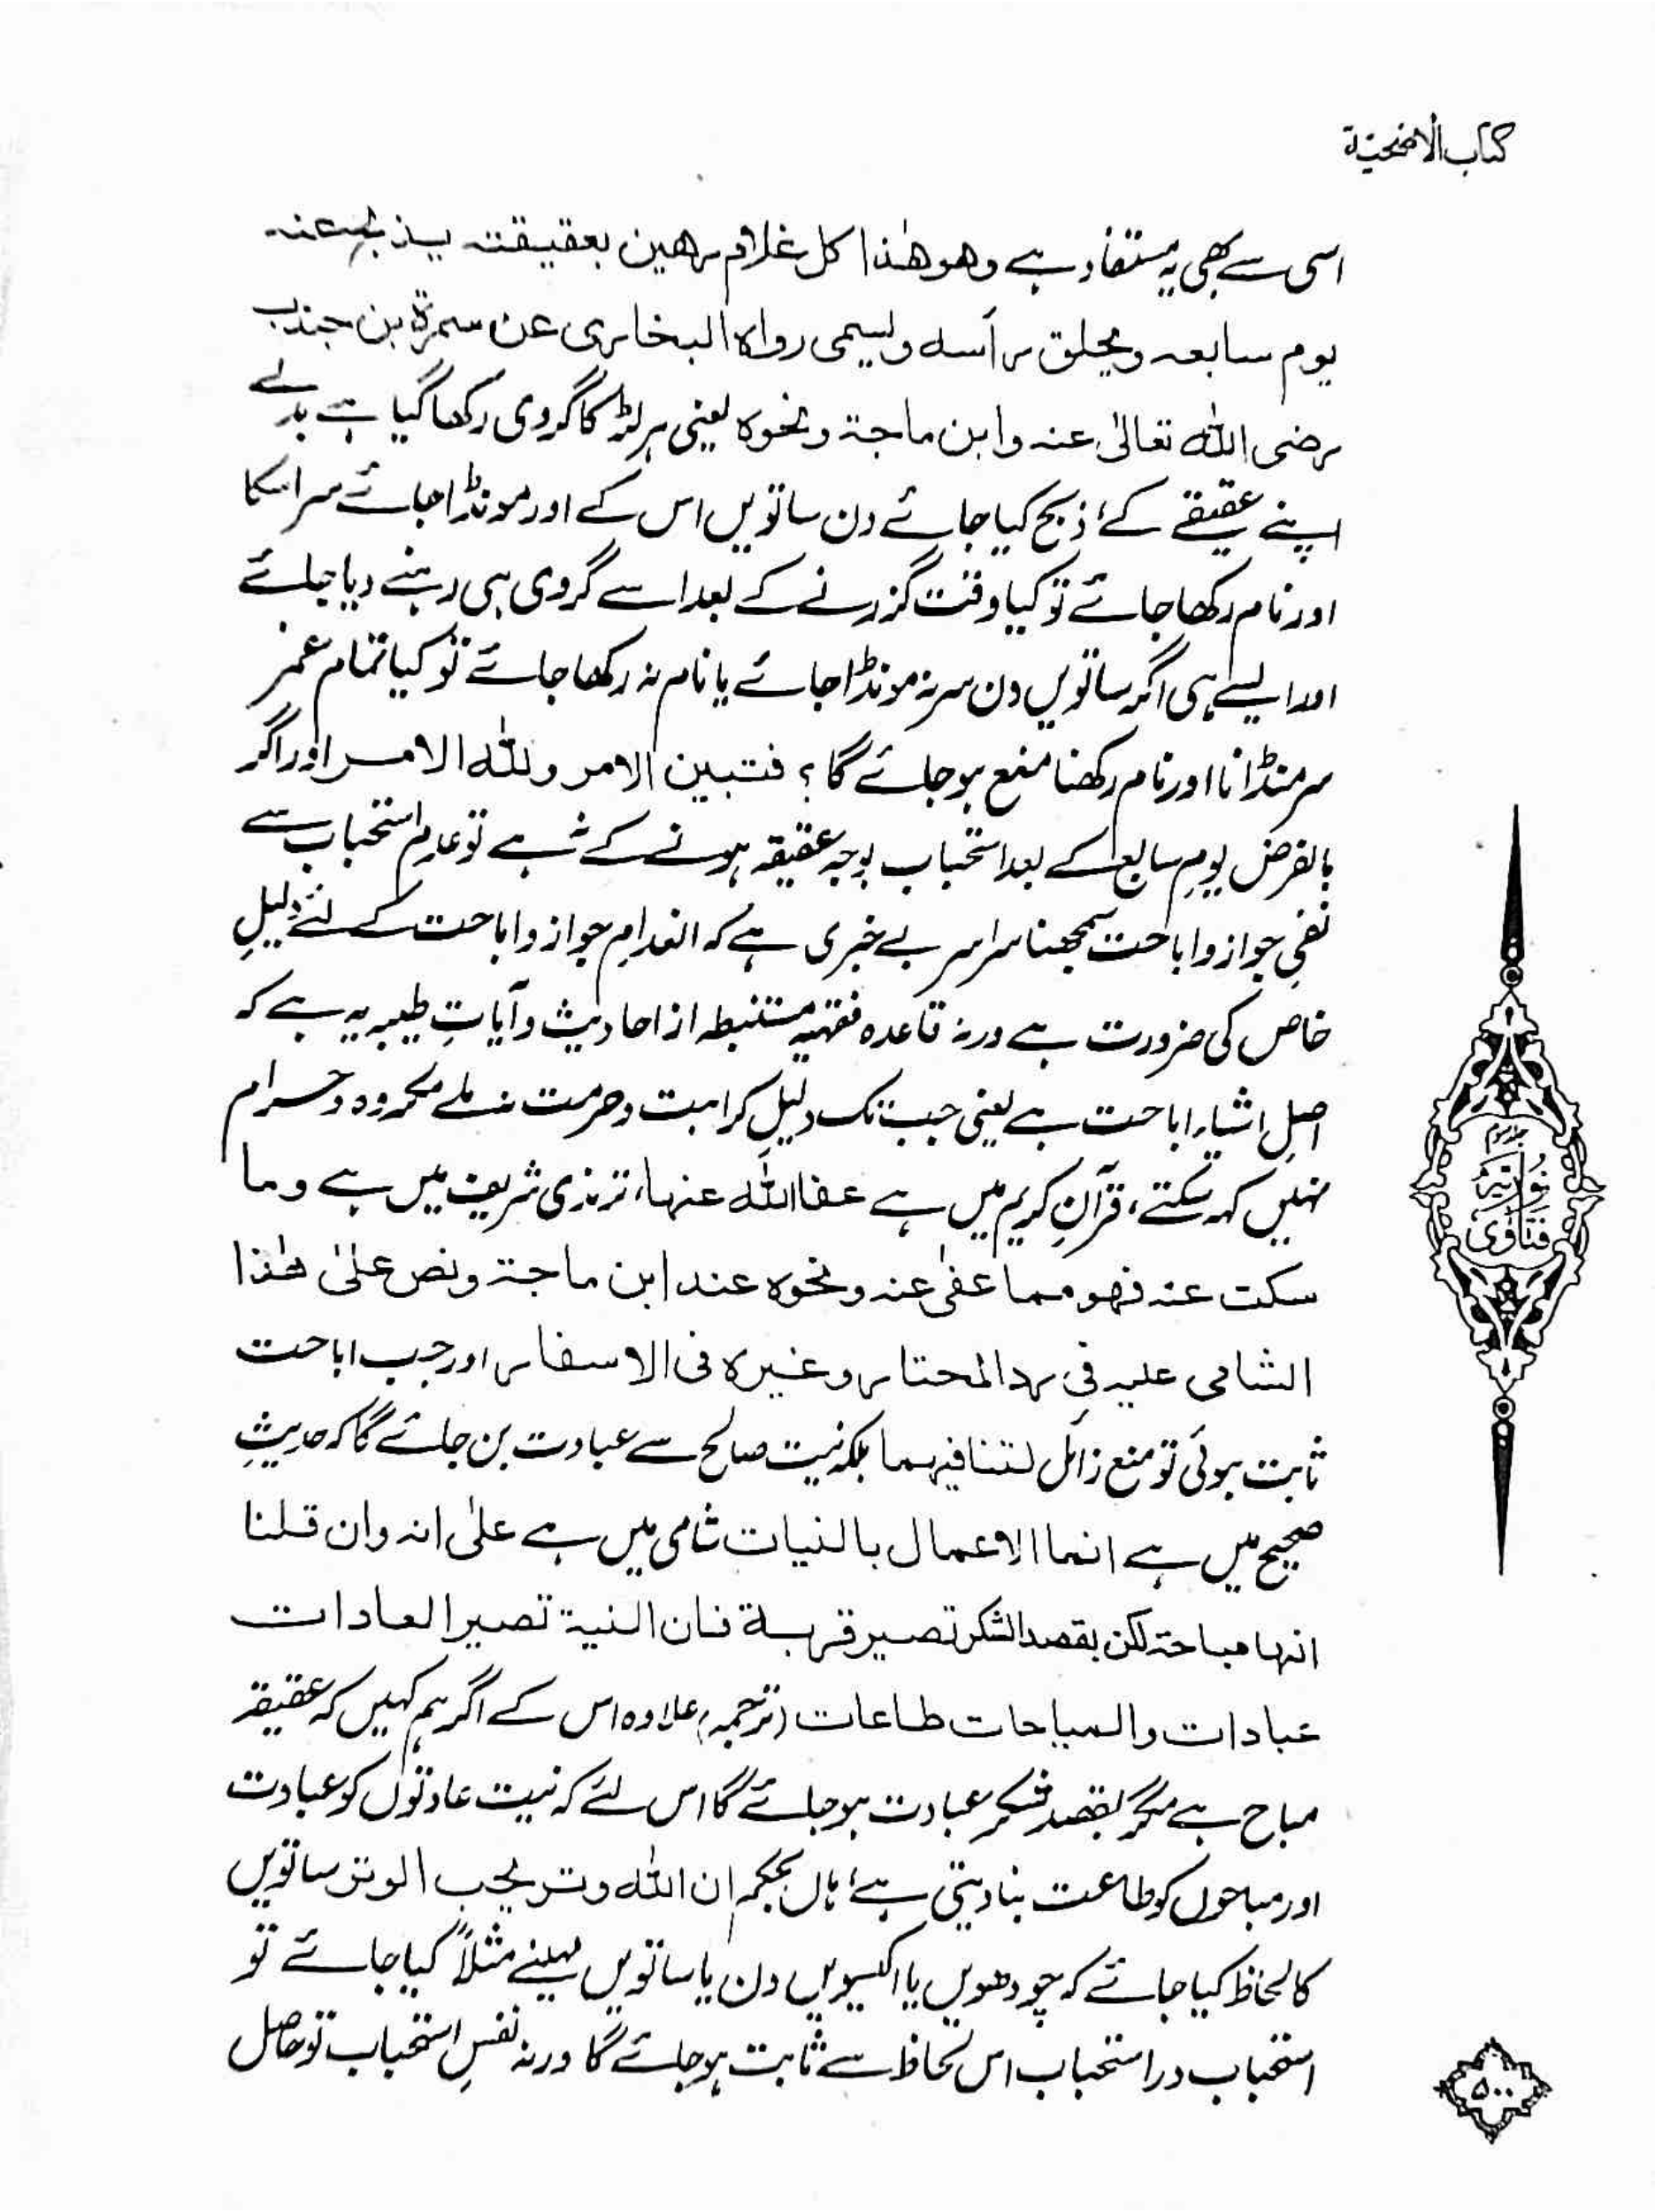 کتاب الاضحیۃ
اسی سے بھی یہ مستفاد ہے وھو ھٰذا کل غلام رھین بعقیقتہ یذبح عنہ
یوم سابعہ ویحلق رأسہ ویسمی رواہ البخاری عن سمرۃ بن جندب
رضی اللہ تعالیٰ عنہ وابن ماجۃ ونحوہ یعنی ہر لڑکا گروی رکھا گیا ہے بدلے
اپنے عقیقے کے، ذبح کیا جائے دن ساتویں اس کے اور مونڈا جائے سر اسکا
اور نام رکھا جائے تو کیا وقت گزرنے کے بعد اسے گروی ہی رہنے دیا جائے
اور ایسے ہی اگر ساتویں دن سر نہ مونڈا جائے یا نام نہ رکھا جائے تو کیا تمام عمر
سر منڈانا اور نام رکھنا منع ہو جائے گا؟ فتبین الامر وللہ الامر اور اگر
بالفرض یومِ سابع کے بعد استحباب بوجہ عقیقہ ہونے کے نہ ہے تو عدمِ استحباب سے
نفیِ جواز و اباحت سمجھنا سراسر بے خبری ہے کہ انعدامِ جواز و اباحت کے لئے دلیلِ
خاص کی ضرورت ہے ورنہ قاعدہ فقہیہ مستنبطہ از احادیث و آیاتِ طیبہ یہ ہے کہ
اصلِ اشیاء اباحت ہے یعنی جب تک دلیلِ کراہت و حرمت نہ ملے مکروہ و حرام
نہیں کہہ سکتے، قرآنِ کریم میں ہے عفا اللہ عنہا، ترمذی شریف میں ہے وما
سکت عنہ فھو مما عفٰی عنہ ونحوہ عند ابن ماجۃ ونص علیٰ ھٰذا
الشامی علیہ فی ردالمحتار وغیرہ فی الاسفار اور جب اباحت
ثابت ہوئی تو منع زائل لتنافیہما بلکہ نیت صالح سے عبادت بن جائے گا کہ حدیثِ
صحیح میں ہے انما الاعمال بالنیات شامی میں ہے علیٰ انہ وان قلنا
انہا مباحۃ لکن بقصد الشکر تصیر قربۃ فان النیۃ تصیر العادات
عبادات والمباحات طاعات (ترجمہ) علاوہ اس کے اگر ہم کہیں کہ عقیقہ
مباح ہے مگر بقصد شکر عبادت ہو جائے گا اس لئے کہ نیت عادتوں کو عبادت
اور مباحوں کو طاعت بنا دیتی ہے، ہاں بحکم ان اللہ وتر یحب الوتر ساتویں
کا لحاظ کیا جائے کہ چودھویں یا اکیسویں دن یا ساتویں مہینے مثلاً کیا جائے تو
استحباب در استحباب اس لحاظ سے ثابت ہو جائے گا ورنہ نفسِ استحباب تو حاصل
فتاویٰ نوریہ
جلد سوم
۵۰۰